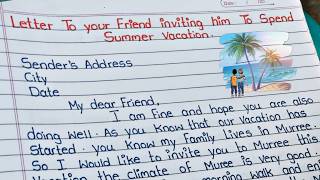 Letter To your Friend inviting him To Spend
Summer Vacation.
Sender's Address
City
Date
My dear Friend,
I am Fine and hope you are also
doing well. As you Know that our Vacation has
Started. you Know my Family Lives in Murree.
So I would like to invite you to Murree this
Vacation the climate of Muree is very good.
morning walk and